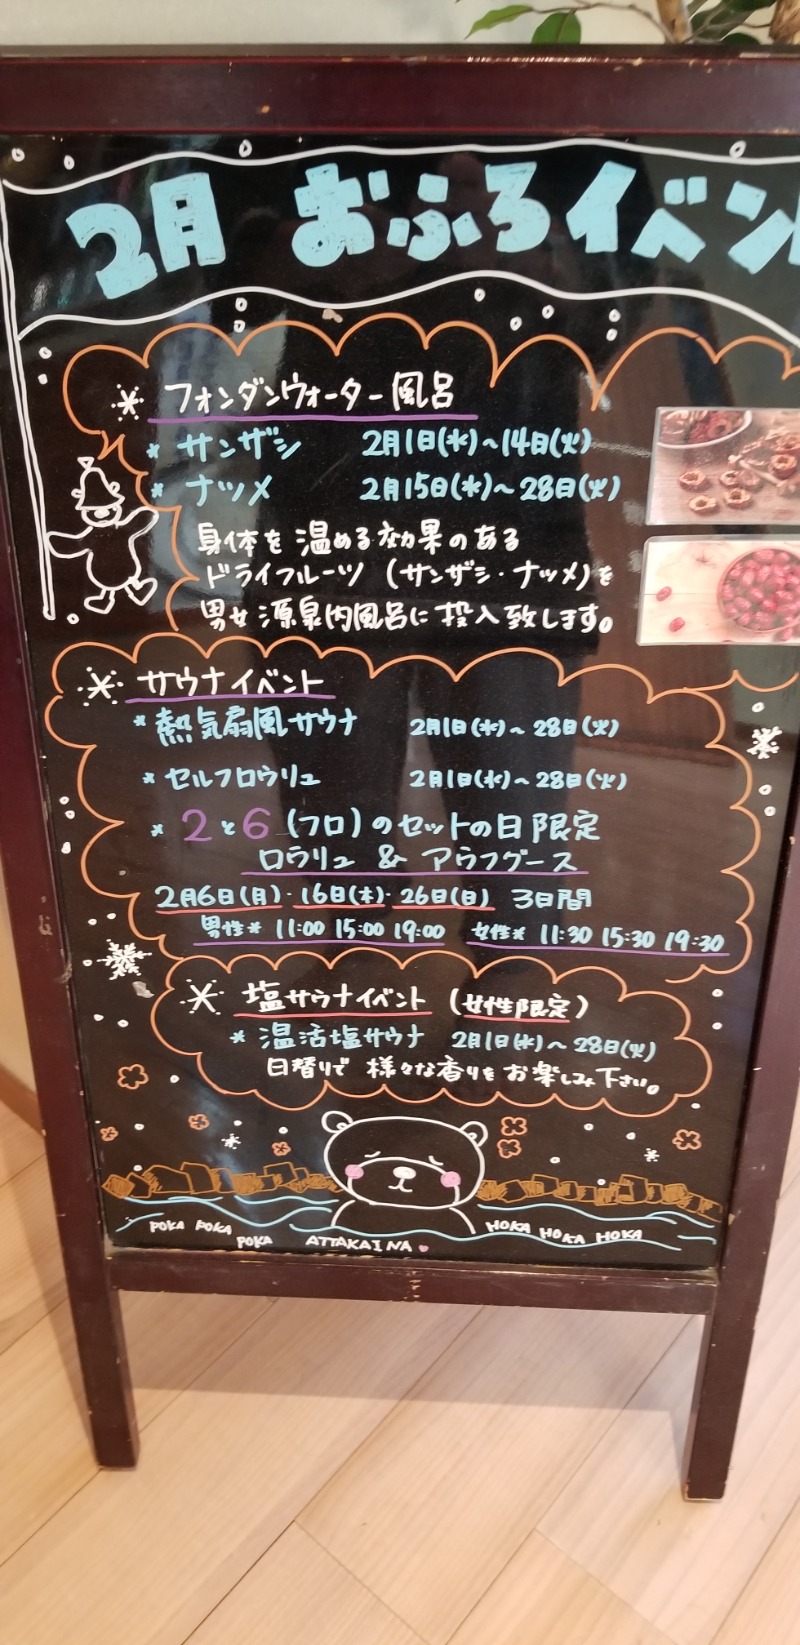 2月 おふろイベン
フォンダンウォーター風呂
* サンザシ 2月1日(水)~14日(火)
* ナツメ 2月15日(水)~28日(火)
身体を温める効果のある
ドライフルーツ (サンザシ・ナツメ)を
男女源泉内風呂に投入致します。
サウナイベント
* 熱気扇風サウナ 2月1日(水)~28日(火)
* セルフロウリュ 2月1日(水)~28日(火)
* 2と6(フロ)のセットの日限定
ロウリュ & アウフグース
2月6日(月)・16日(木)・26日(日) 3日間
男性* 11:00 15:00 19:00 女性* 11:30 15:30 19:30
塩サウナイベント (女性限定)
* 温活塩サウナ 2月1日(水)~28日(火)
日替りで 様々な香りをお楽しみ下さい。
POKA POKA
POKA
ATTAKAINA
HOKA HOKA HOKA